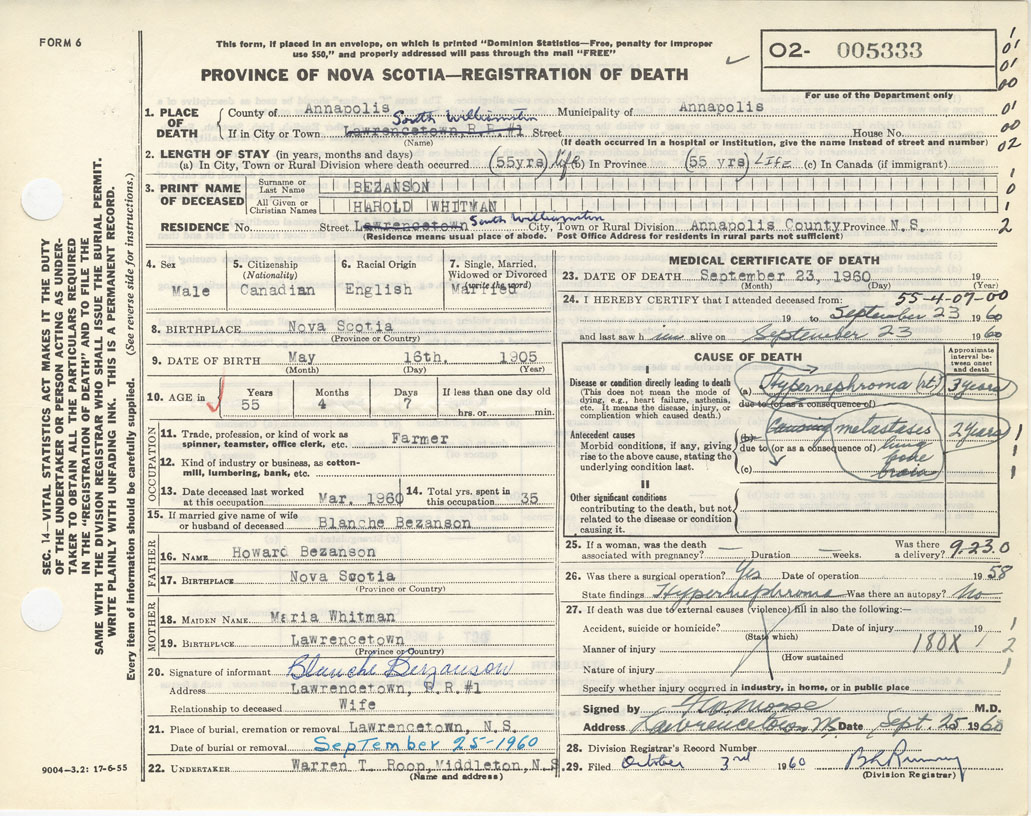 FORM 6
This form, if placed in an envelope, on which is printed "Dominion Statistics—Free, penalty for improper
use $50," and properly addressed will pass through the mail "FREE"
PROVINCE OF NOVA SCOTIA—REGISTRATION OF DEATH
O2- 005333
For use of the Department only
1. PLACE OF DEATH
County of Annapolis Municipality of Annapolis
South Williamston
If in City or Town Lawrencetown, R.R.#1 Street House No.
(Name) (If death occurred in a hospital or institution, give the name instead of street and number)
2. LENGTH OF STAY (in years, months and days)
(a) In City, Town or Rural Division where death occurred (55yrs) life (b) In Province (55 yrs) LIFE (c) In Canada (if immigrant)
3. PRINT NAME OF DECEASED
Surname or Last Name BEZANSON
All Given or Christian Names HAROLD WHITMAN
RESIDENCE No. Street Lawrencetown South Williamston City, Town or Rural Division Annapolis County Province N.S.
(Residence means usual place of abode. Post Office Address for residents in rural parts not sufficient)
4. Sex Male
5. Citizenship (Nationality) Canadian
6. Racial Origin English
7. Single, Married, Widowed or Divorced (write the word) Married
8. BIRTHPLACE Nova Scotia
(Province or Country)
9. DATE OF BIRTH May 16th, 1905
(Month) (Day) (Year)
10. AGE in Years 55 Months 4 Days 7 If less than one day old
hrs. or min.
OCCUPATION
11. Trade, profession, or kind of work as
spinner, teamster, office clerk, etc. Farmer
12. Kind of industry or business, as cotton-
mill, lumbering, bank, etc.
13. Date deceased last worked
at this occupation Mar. 1960
14. Total yrs. spent in
this occupation 35
15. If married give name of wife
or husband of deceased Blanche Bezanson
FATHER
16. NAME Howard Bezanson
17. BIRTHPLACE Nova Scotia
(Province or Country)
MOTHER
18. MAIDEN NAME Maria Whitman
19. BIRTHPLACE Lawrencetown
(Province or Country)
20. Signature of informant Blanche Bezanson
Address Lawrencetown, R.R.#1
Relationship to deceased Wife
21. Place of burial, cremation or removal Lawrencetown, N.S.
Date of burial or removal September 25-1960
22. UNDERTAKER Warren T. Roop, Middleton, N.S
(Name and address)
MEDICAL CERTIFICATE OF DEATH
23. DATE OF DEATH September 23, 1960 19
(Month) (Day) (Year)
24. I HEREBY CERTIFY that I attended deceased from:
55-4-07-00
19 to September 23 1960
and last saw him alive on September 23 1960
CAUSE OF DEATH
Approximate interval between onset and death
I
Disease or condition directly leading to death
(This does not mean the mode of dying, e.g., heart failure, asthenia, etc. It means the disease, injury, or complication which caused death.)
(a) Hypernephroma (rt) 3 years
due to (or as a consequence of)
Antecedent causes
Morbid conditions, if any, giving rise to the above cause, stating the underlying condition last.
(b) Causing metastases 2 years
due to (or as a consequence of) lung
bone
(c) brain
II
Other significant conditions
contributing to the death, but not related to the disease or condition causing it.
25. If a woman, was the death associated with pregnancy? Duration weeks. Was there a delivery? 9.23.0
26. Was there a surgical operation? Yes Date of operation 1958
State findings Hypernephroma Was there an autopsy? No
27. If death was due to external causes (violence) fill in also the following:—
Accident, suicide or homicide? Date of injury 19
(State which)
Manner of injury 180X
(How sustained
Nature of injury
Specify whether injury occurred in industry, in home, or in public place
Signed by M.D.
Address Lawrencetown Date Sept. 25 1960
28. Division Registrar's Record Number
29. Filed October 3rd 1960
(Division Registrar)
SEC. 14—VITAL STATISTICS ACT MAKES IT THE DUTY
OF THE UNDERTAKER OR PERSON ACTING AS UNDER-
TAKER TO OBTAIN ALL THE PARTICULARS REQUIRED
IN THE "REGISTRATION OF DEATH" AND TO FILE THE
SAME WITH THE DIVISION REGISTRAR WHO SHALL ISSUE THE BURIAL PERMIT.
WRITE PLAINLY WITH UNFADING INK. THIS IS A PERMANENT RECORD.
Every item of information should be carefully supplied. (See reverse side for instructions.)
9004-3.2: 17-6-55